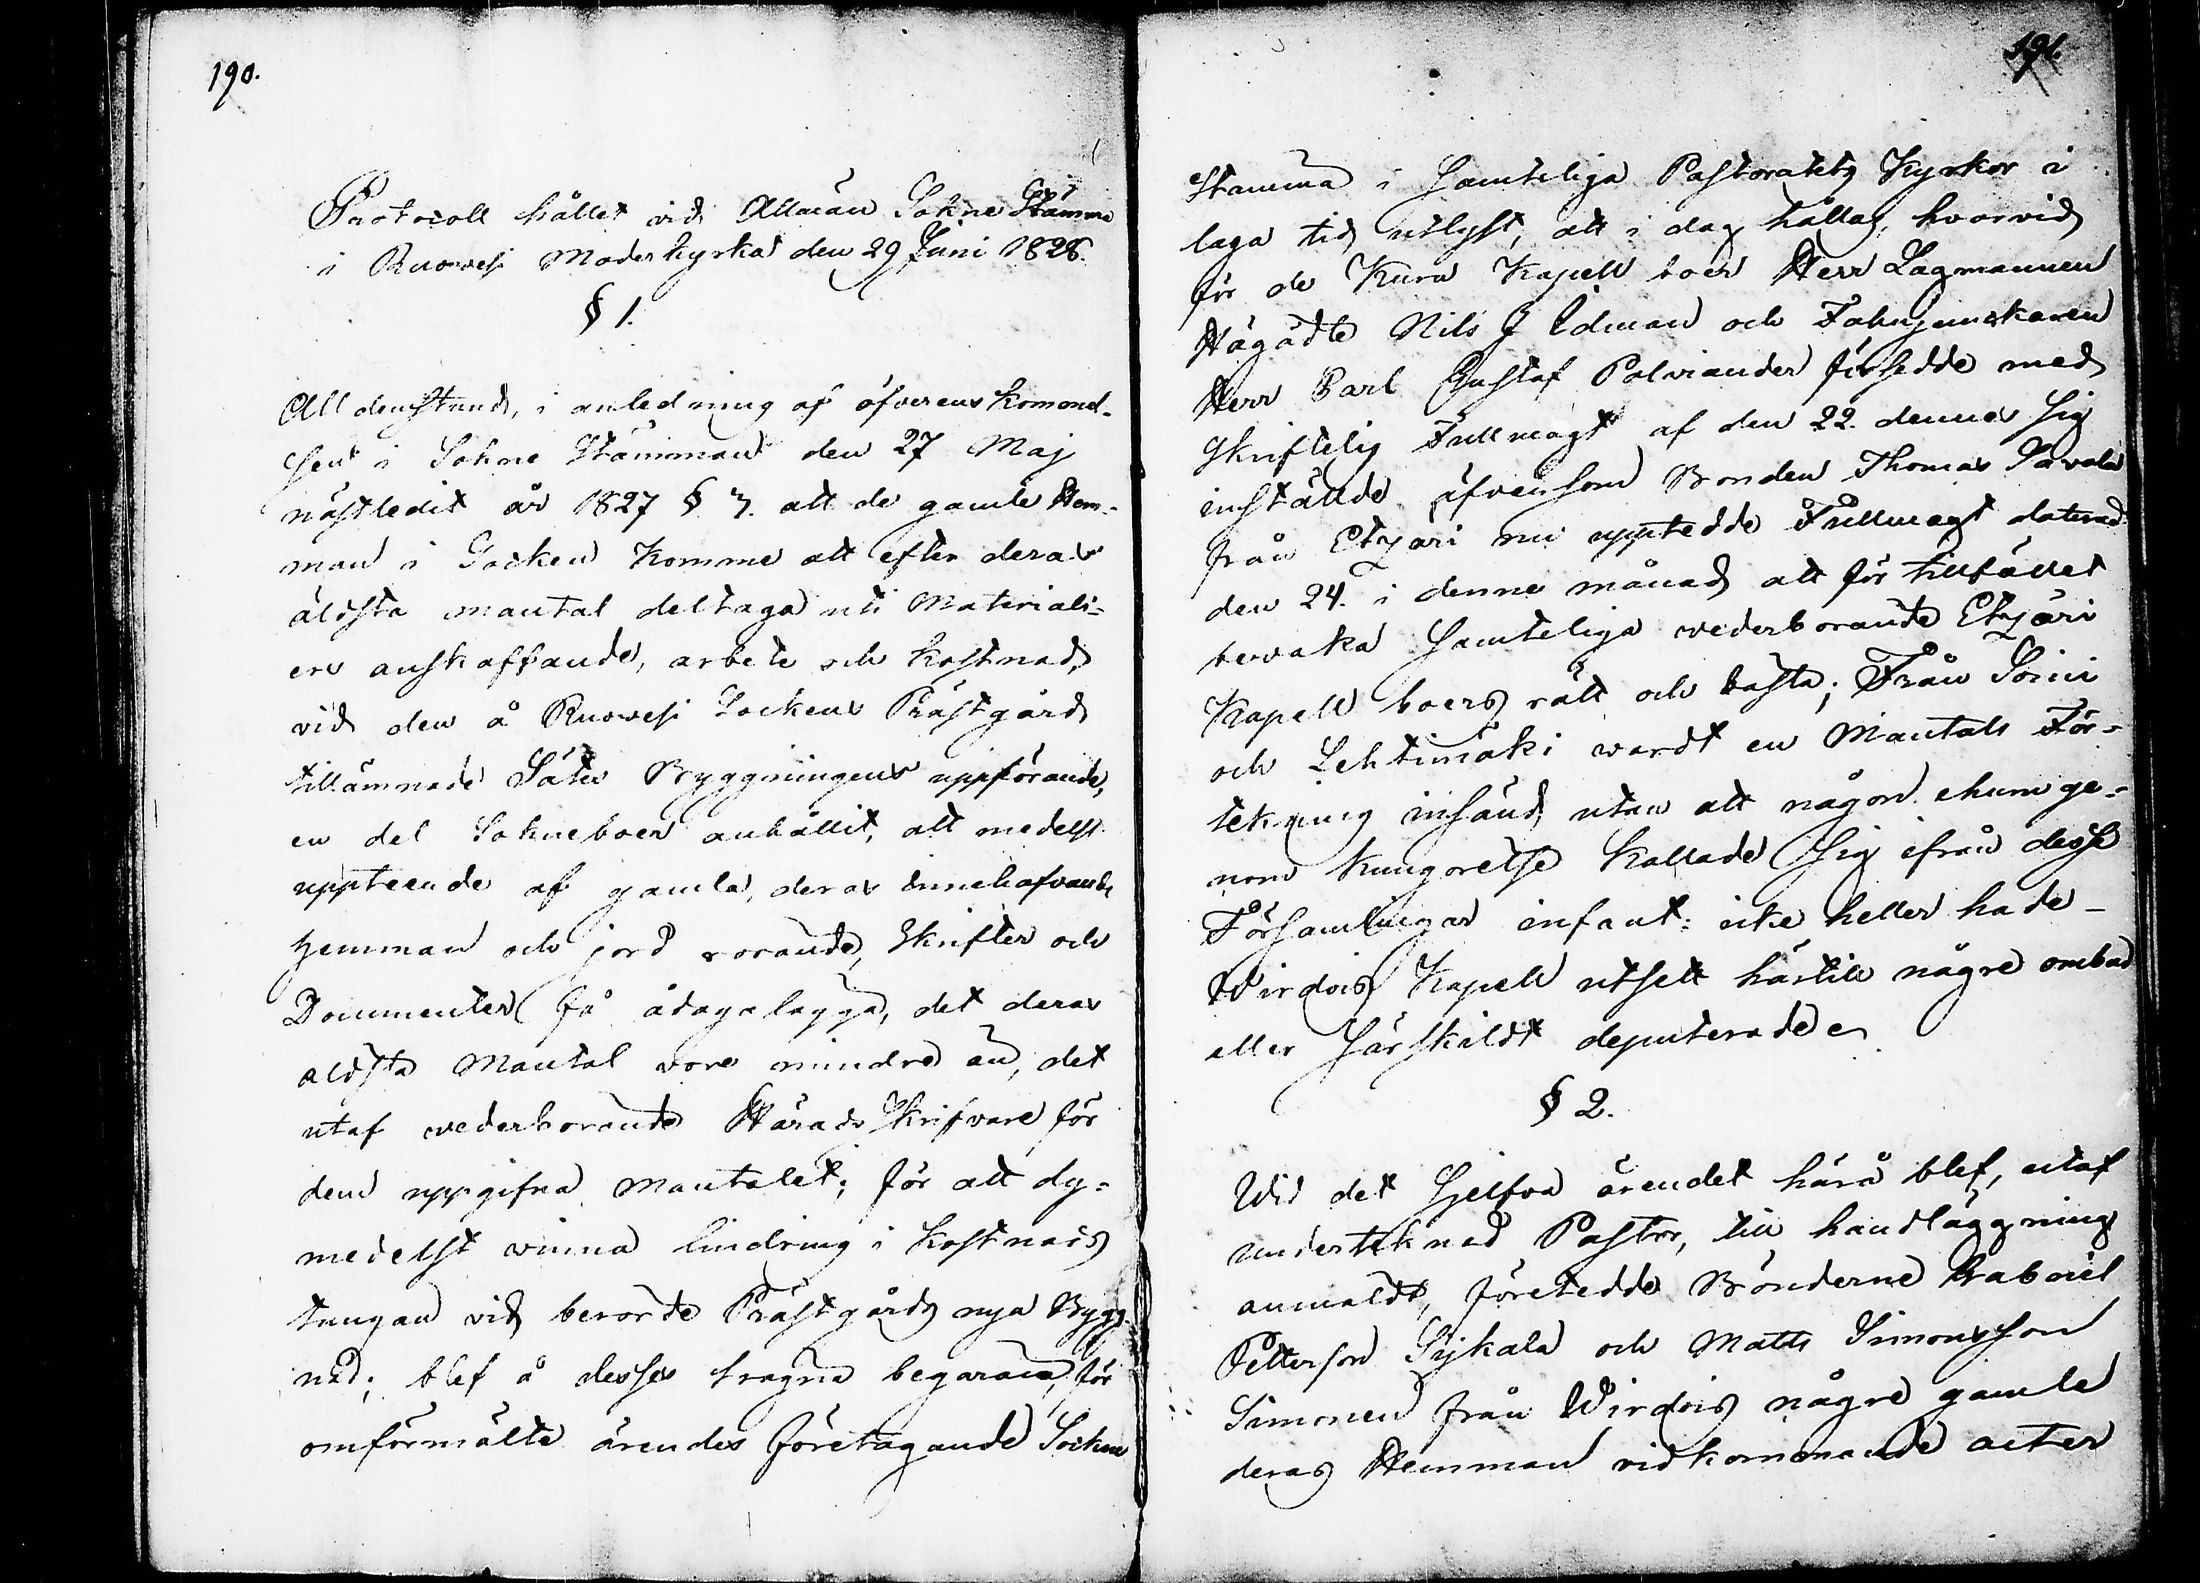 190.
Protocoll hållet vid Allmän Sokne Stämma
i Ruovesi Moderkyrka den 29 Juni 1828.
§ 1.
Alldenstund, i anledning af öfverens kommel-
sen i Sokne Stämman den 27 Maj
nästledit år 1827 § 7. att de gamle Hem-
man i Socken komme att efter deras
äldsta mantal deltaga uti Materiali-
ers anskaffande, arbete och kostnad,
vid den å Ruovesi Sockens Prästgård
tillämnade Sätes Byggningens uppförande,
en del Sokneboer anhållit, att medelst
uppteende af gamla, deras innehafvande
hemman och jord rörande, Skrifter och
Documenter få ådagalägga, det deras
äldsta Mantal vore mindre än, det
utaf vederbörande Härads Skrifvare för
dem uppgifna Mantalet; för att dy-
medelst vinna lindring i Kostnads
tungan vid berörde Prästgårds nya Bygg-
nad; blef å desses trägna begäran, för
omförmälte ärendes företagande Sockne
191.
Stämma i Samteliga Pastoratets Kyrkor i
laga tid utlyst, att i dag hållas, hvarvid
för de Kuru Kapell boer Herr Lagmannen
Högädle Nils J Idman och Fahnjunkaren
Herr Carl Gustaf Polviander försedde med
Skriftelig Fullmagt af den 22. dennes sig
inställde äfvensom Bonden Thomas Pavola
från Etzäri nu uptedde Fullmagt daterad
den 24. i denne månad att för tillfället
bevaka Samteliga vederbörande Etzäri
Kapell boers rätt och bästa; Från Soini
och Lehtimäki vardt en Mantals För-
tekning insänd, utan att någon ehuru ge-
nom kungörelse kallade sig ifrån desse
Församlingar infant: icke heller hade
Wirdois Kapell utsett härtill någre ombud
eller särskildt deputerade
§ 2.
Wid det sjelfva ärendet härå blef, utaf
underteknad Pastor, till handläggning
anmäldt, företedde Bönderne Gabriel
Petterson Sykälä och Matts Simonsson
Simonen från Wirdois någre gamle
deras Hemman vidkommande acter